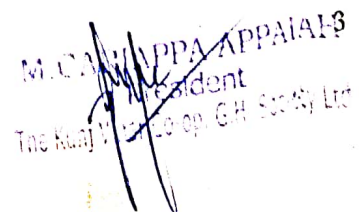 3
M. CARIAPPA APPAIAH
President
The Kunj Co-op. G.H. Society Ltd